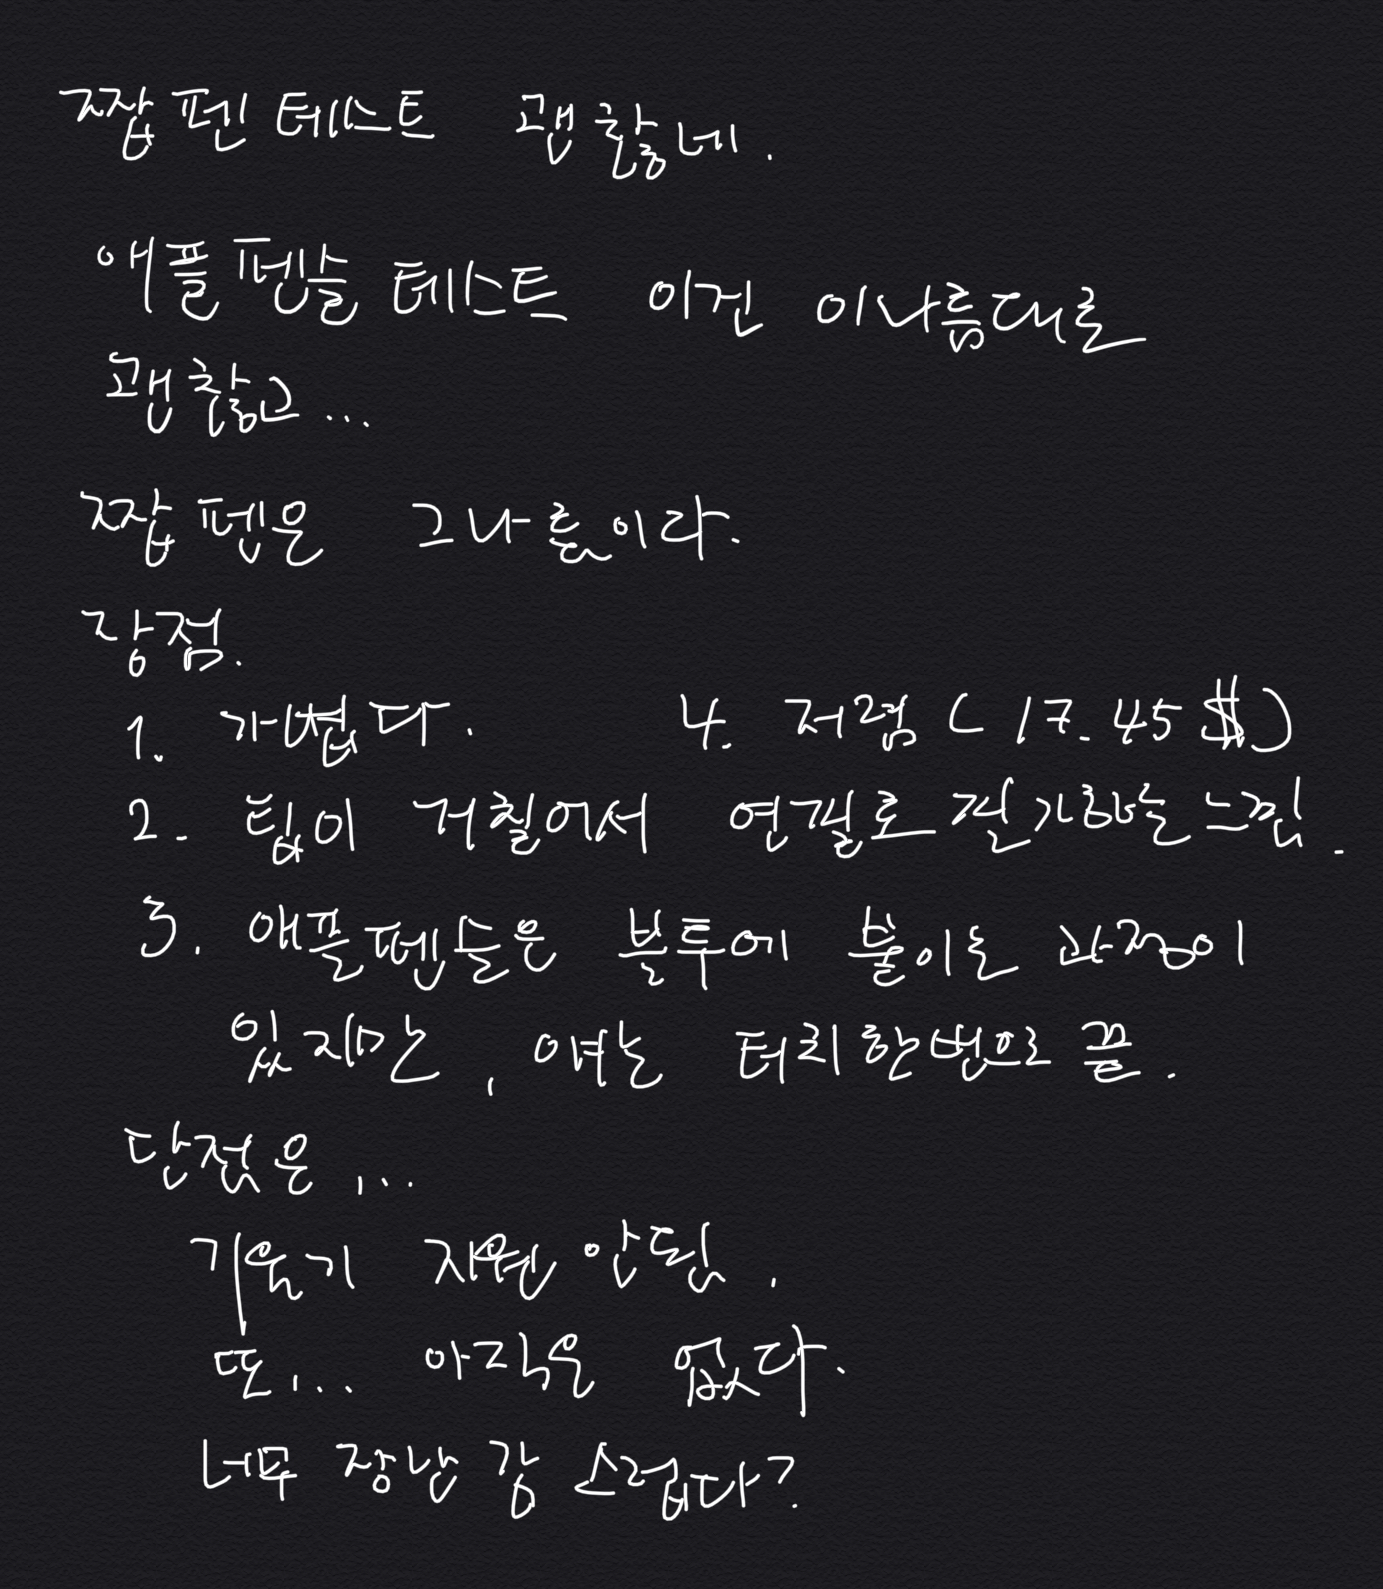 짭펜 테스트 괜찮네.
애플펜슬 테스트 이건 이나름대로
괜찮고...
짭펜은 그나름이다.
장점.
1. 가볍다. 4. 저렴 (17.45$)
2. 팁이 거칠어서 연필로 필기하는 느낌.
3. 애플펜슬은 블투에 붙이는 과정이
있지만, 얘는 터치 한번으로 끝.
단점은,..
기울기 지원 안됨.
또,.. 아직은 없다.
너무 장난감스럽다?